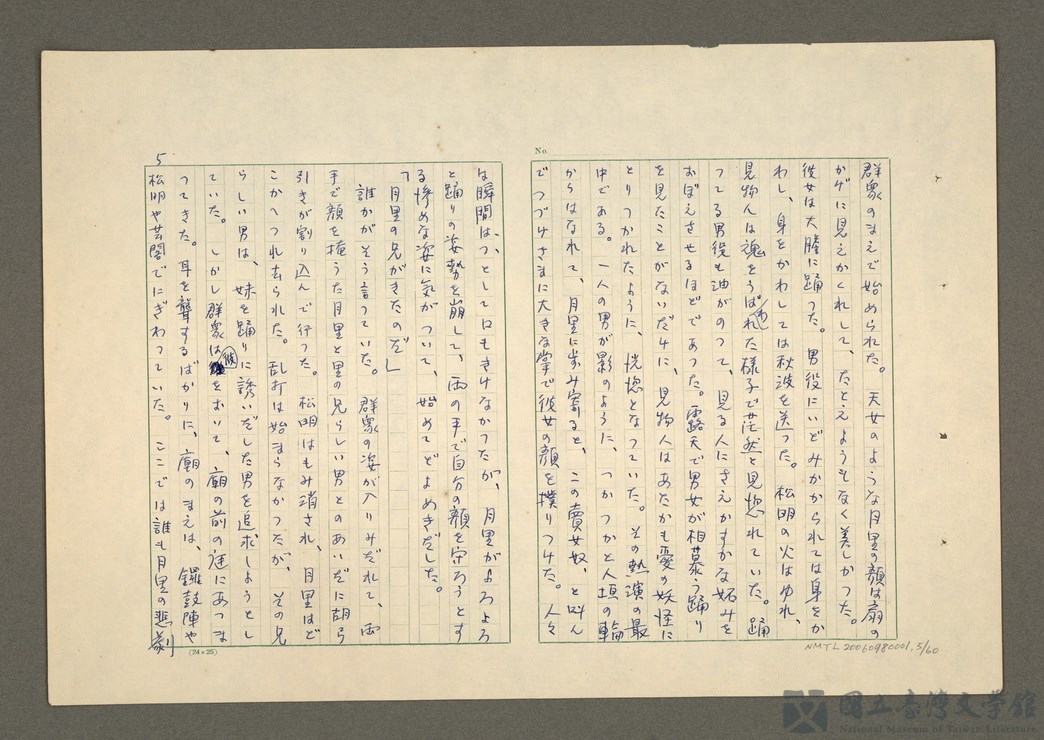 No.
群衆のまえで始められた。天女のような月里の顔は扇の
かげに見えかくれして、たとえようもなく美しかつた。
彼女は大膽に踊つた。男役にいどみかかられては身をか
わし、身をかわしては秋波を送つた。松明の火はゆれ、
見物人は魂をうばわれた様子で茫然と見惚れていた。踊
つてる男役も油がのつて、見る人にさえかすかな妬みを
おぼえさせるほどであつた。露天で男女が相慕う踊り
を見たことがないだけに、見物人はあたかも憂の妖怪に
とりつかれたように、恍惚となつていた。その熱演の最
中である。一人の男が影のように、つかつかと人垣の輪
からはなれて、月里に歩み寄ると、この賣女奴、と叫ん
でつづけさまに大きな掌で彼女の顔を撲りつけた。人々
は瞬間はつとして口もきけなかつたが、月里がよろよろ
と踊りの姿勢を崩して、両の手で自分の顔を守ろうとす
る惨めな姿に気がついて、始めてどよめきだした。
「月里の兄がきたのだ」
誰かがそう言つていた。群衆の姿が入りみだれて、両
手で顔を掩うた月里と里の兄らしい男とのあいだに胡弓
引きが割り込んで行つた。松明はもみ消され、月里はど
こかへつれ去られた。乱打は始まらなかつたが、その兄
らしい男は、妹を踊りに誘いだした男を追求しようとし
ていた。しかし群衆は をおいて、廟の前の庭にあつま
つてきた。耳を聾するばかりに、廟のまえは、鑼鼓陣や
5
松明や芸閣でにぎわつていた。ここでは誰も月里の悲劇
(24×25)
NMTL20060980001,5/60
國立臺灣文學館
National Museum of Taiwan Literature